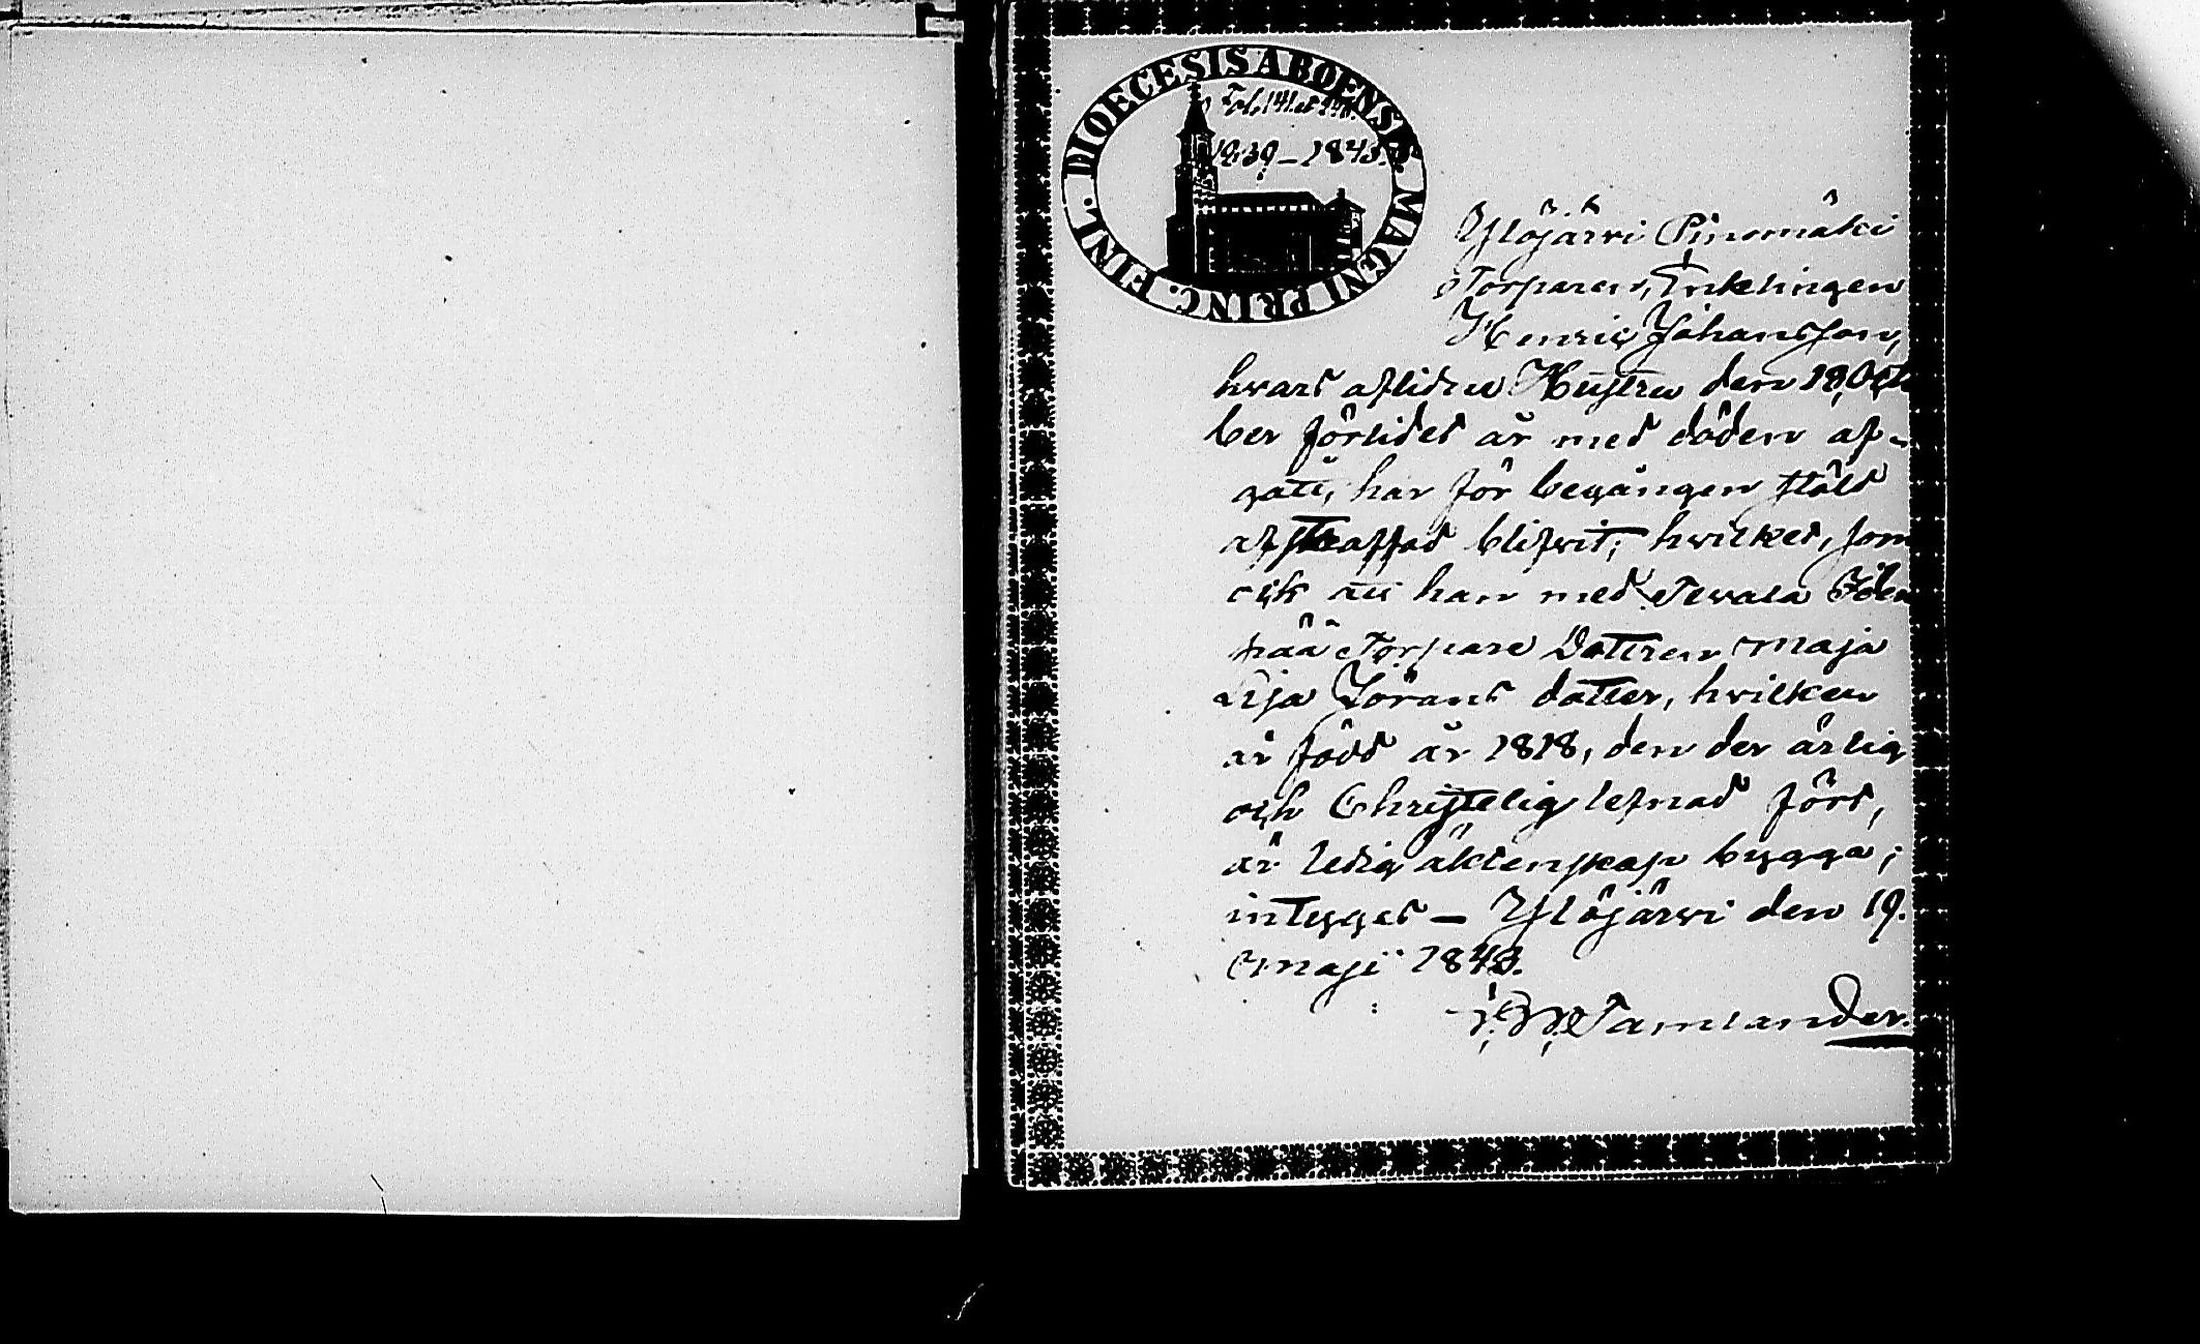 DIOECESIS ABOENSIS. MAGNI PRINC. FINL.
Fol. 141 et
1839–1843.
Ylöjärvi Pinomäki
Torparen, Enklingen
Henric Johansson,
hvars aflidna Hustru den 18 Octo
ber förlidet år med döden af-
gått, har för begången stöld
afstraffad blifvit; hvilket, som
ock att han med
pää Torpare Dottren Maja
Lisa Jörans dotter, hvilken
är född år 1818, den der ärlig
och Christelig lefnad fört,
är ledig äktenskap bygga;
intygas – Ylöjärvi den 19.
Maji 1843.
Tamlander.